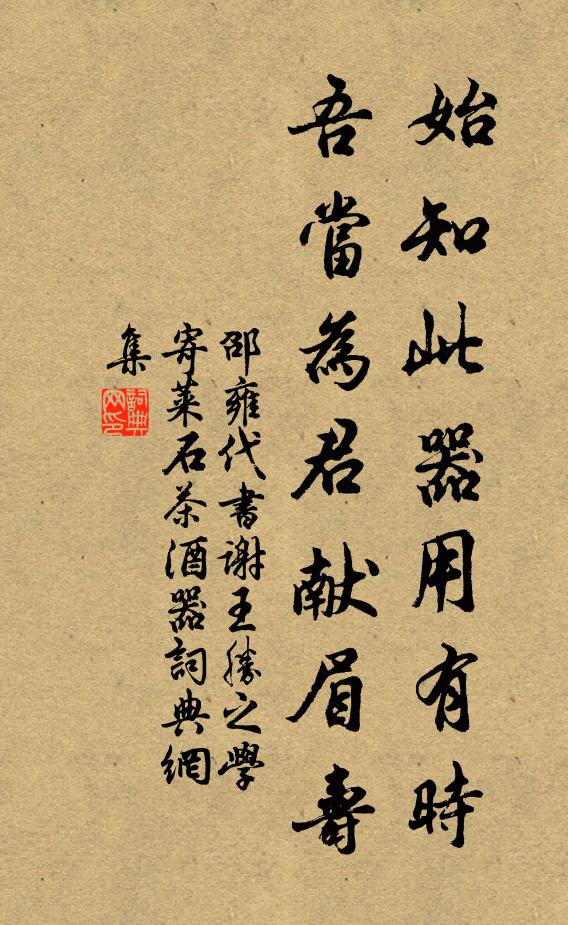 始知此器用有時
吾當為君献眉壽
邵雍代書谢王勝之學
寄莱石茶酒器詞典網
集
詞典網印